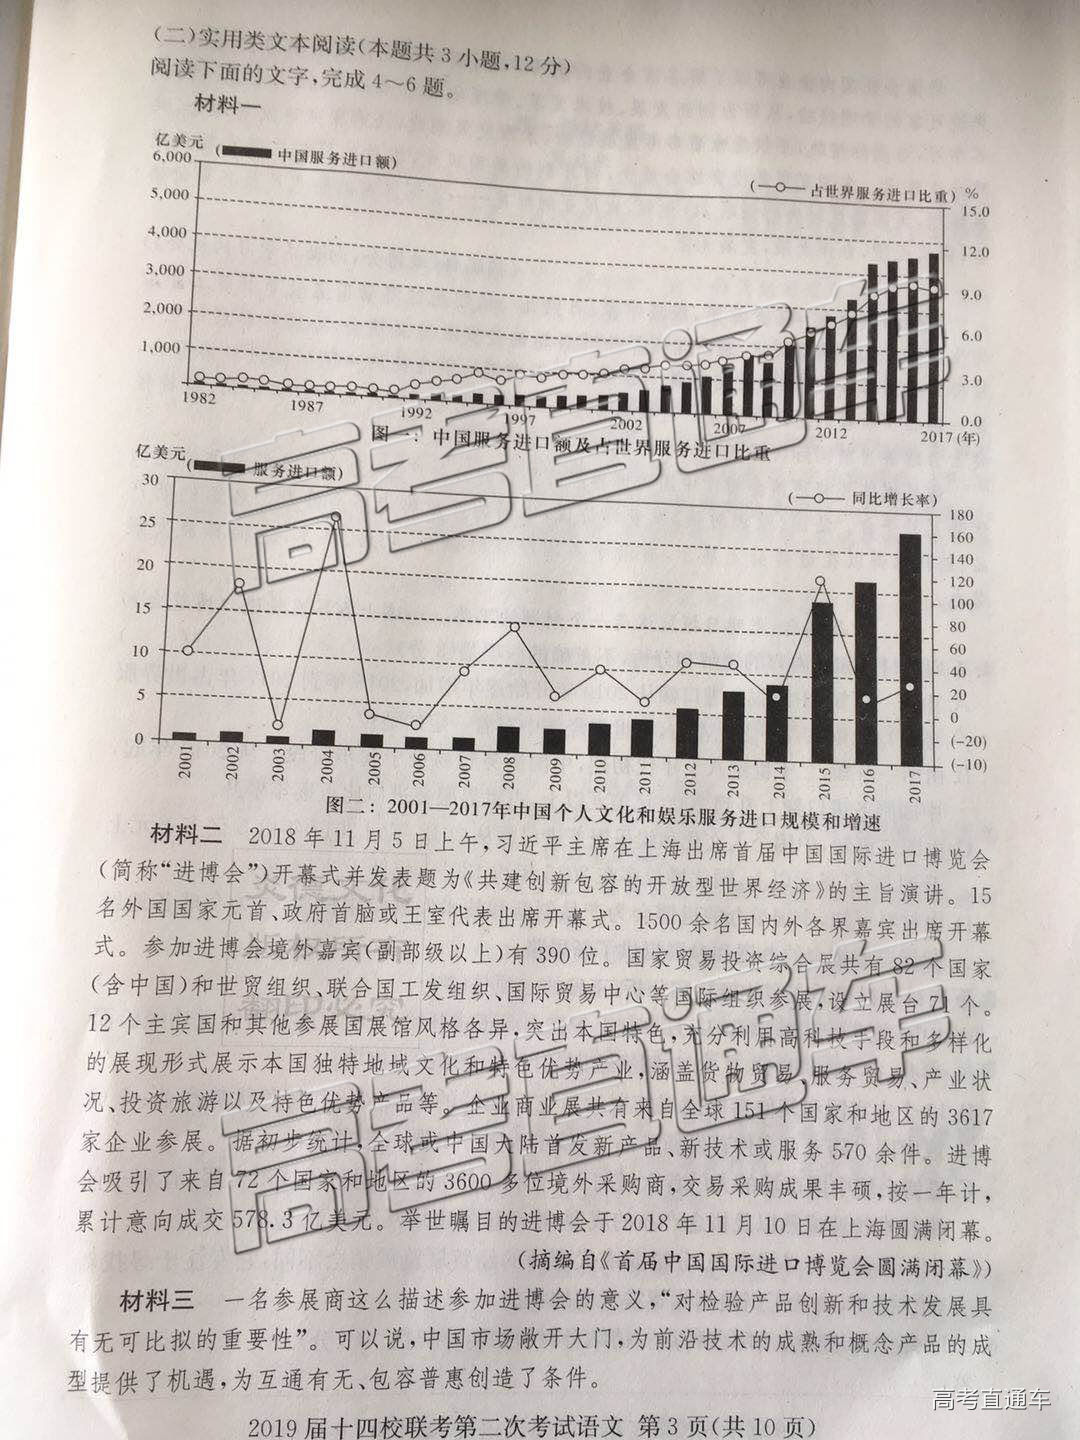 (二)实用类文本阅读(本题共3小题,12分)
阅读下面的文字,完成4～6题。
材料一
亿美元
(中国服务进口额)
(占世界服务进口比重) %
6,000
5,000
4,000
3,000
2,000
1,000
15.0
12.0
9.0
6.0
3.0
0.0
1982 1987 1992 1997 2002 2007 2012 2017(年)
图一：中国服务进口额及占世界服务进口比重
亿美元
(服务进口额)
(同比增长率)
30
25
20
15
10
5
0
180
160
140
120
100
80
60
40
20
0
(-20)
(-10)
2001 2002 2003 2004 2005 2006 2007 2008 2009 2010 2011 2012 2013 2014 2015 2016 2017
图二：2001—2017年中国个人文化和娱乐服务进口规模和增速
材料二 2018年11月5日上午,习近平主席在上海出席首届中国国际进口博览会
(简称“进博会”)开幕式并发表题为《共建创新包容的开放型世界经济》的主旨演讲。15
名外国国家元首、政府首脑或王室代表出席开幕式。1500余名国内外各界嘉宾出席开幕
式。参加进博会境外嘉宾(副部级以上)有390位。国家贸易投资综合展共有82个国家
(含中国)和世贸组织、联合国工发组织、国际贸易中心等国际组织参展,设立展台71个。
12个主宾国和其他参展国展馆风格各异,突出本国特色,充分利用高科技手段和多样化
的展现形式展示本国独特地域文化和特色优势产业,涵盖货物贸易、服务贸易、产业状
况、投资旅游以及特色优势产品等。企业商业展共有来自全球151个国家和地区的3617
家企业参展。据初步统计,全球或中国大陆首发新产品、新技术或服务570余件。进博
会吸引了来自72个国家和地区的3600多位境外采购商,交易采购成果丰硕,按一年计,
累计意向成交578.3亿美元。举世瞩目的进博会于2018年11月10日在上海圆满闭幕。
(摘编自《首届中国国际进口博览会圆满闭幕》)
材料三 一名参展商这么描述参加进博会的意义,“对检验产品创新和技术发展具
有无可比拟的重要性”。可以说,中国市场敞开大门,为前沿技术的成熟和概念产品的成
型提供了机遇,为互通有无、包容普惠创造了条件。
2019届十四校联考第二次考试语文 第3页(共10页)
高考直通车
高考直通车
高考直通车